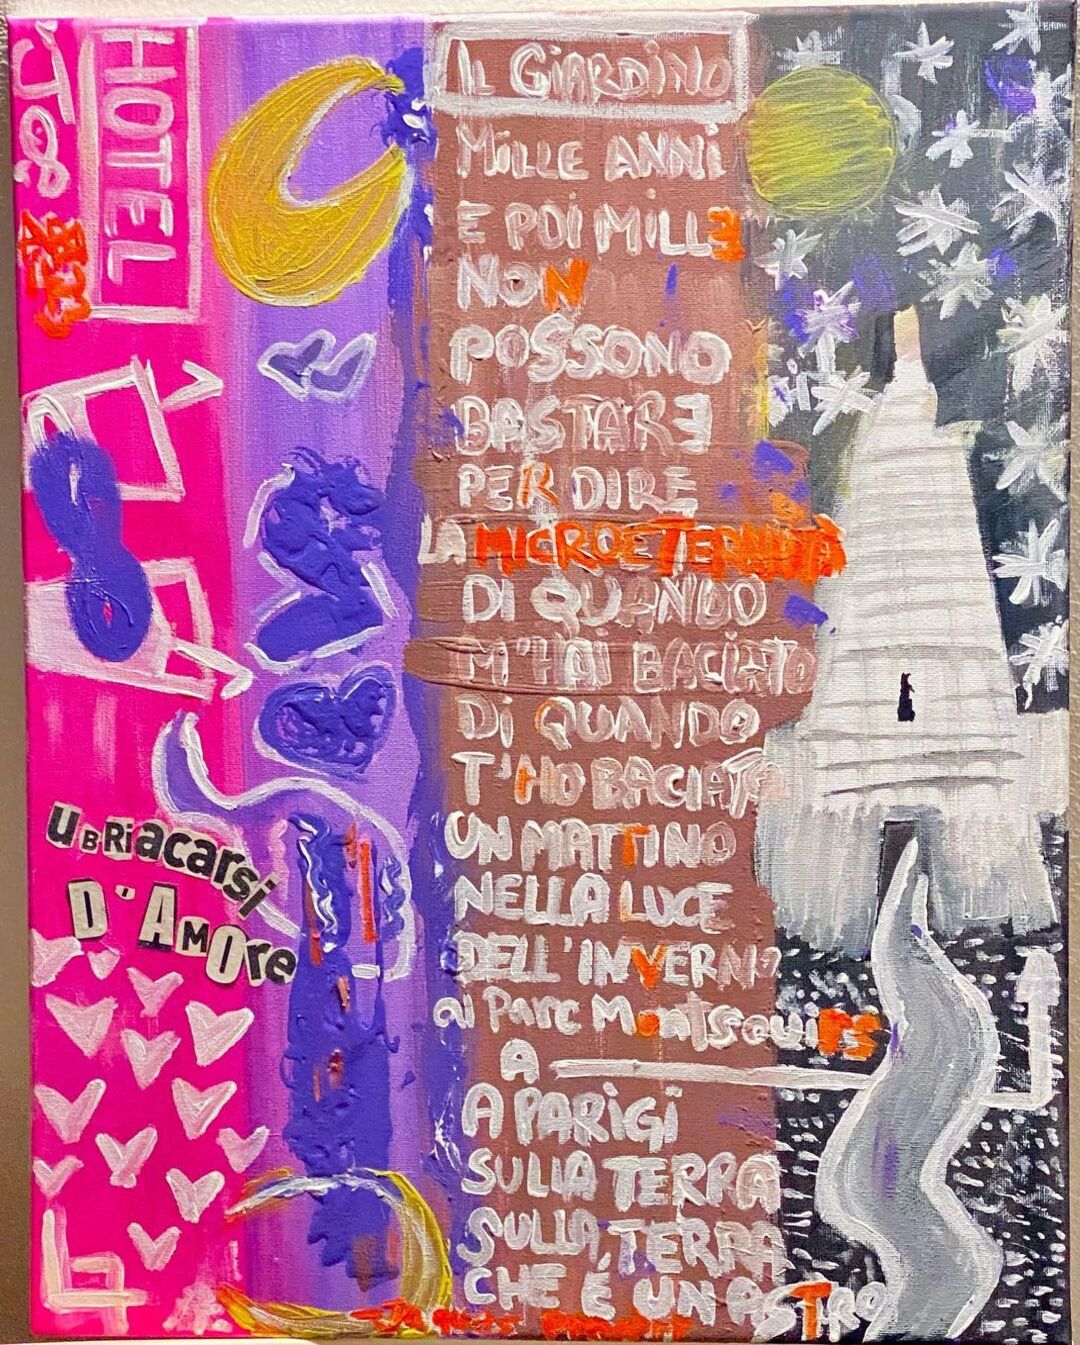 HOTEL
IL GIARDINO
MILLE ANNI
E POI MILLE
NON
POSSONO
BASTARE
PER DIRE
LA MICROETERNITÀ
DI QUANDO
M'HAI BACIATO
DI QUANDO
T'HO BACIATA
UN MATTINO
NELLA LUCE
DELL'INVERNO
al Parc MontsouiRS
A
A PARIGI
SULLA TERRA
SULLA TERRA
CHE É UN ASTRO
UBRiacarsi
D'AMOre